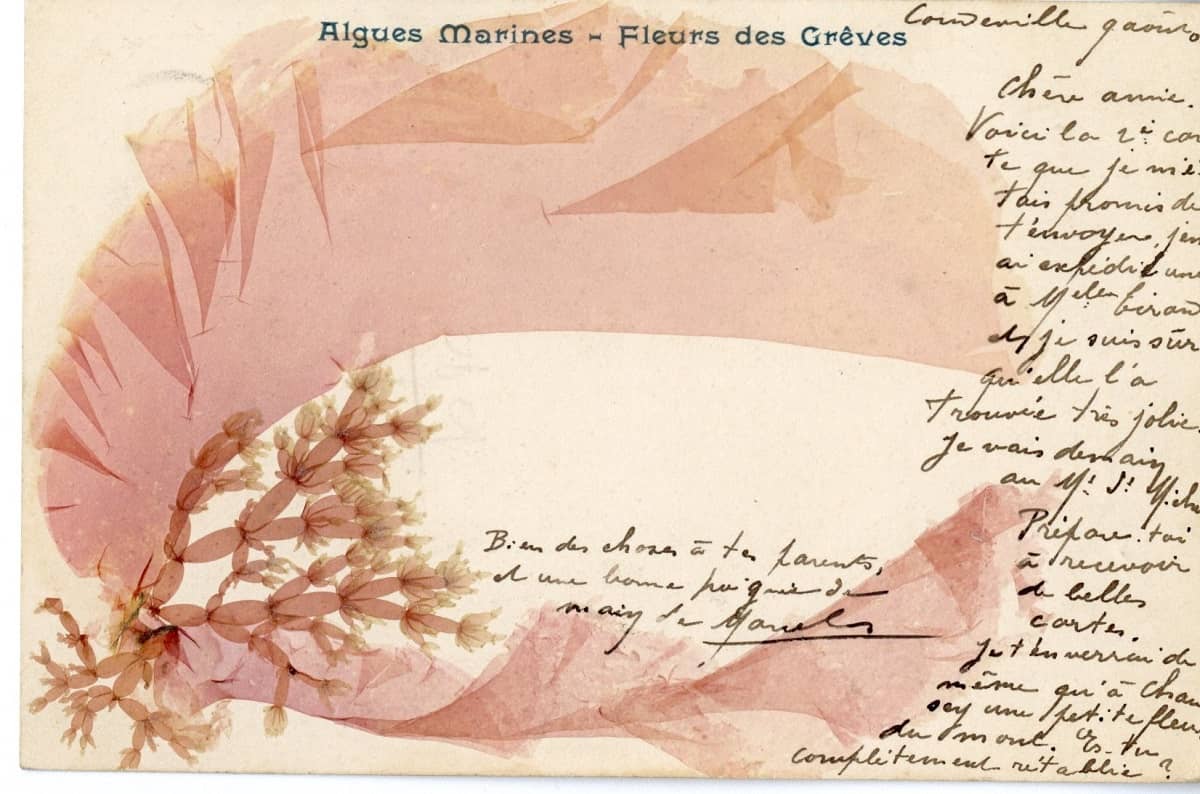 Algues Marines - Fleurs des Grêves
Chère amie.
Voici la 2è car
te que je m'é
tais promis de
t'envoyer, j'en
ai expédié une
à Melle
et je suis sûr
qu'elle l'a
trouvée très jolie.
Je vais demain
au Mt St Miche
Prépare-toi
à recevoir
de belles
cartes.
Je t'enverrai de
même qu'à Chau
sey une petite fleur
du mont. Es-tu
complètement rétablie ?
Bien des choses à tes parents,
et une bonne poignée de
main de Marcel